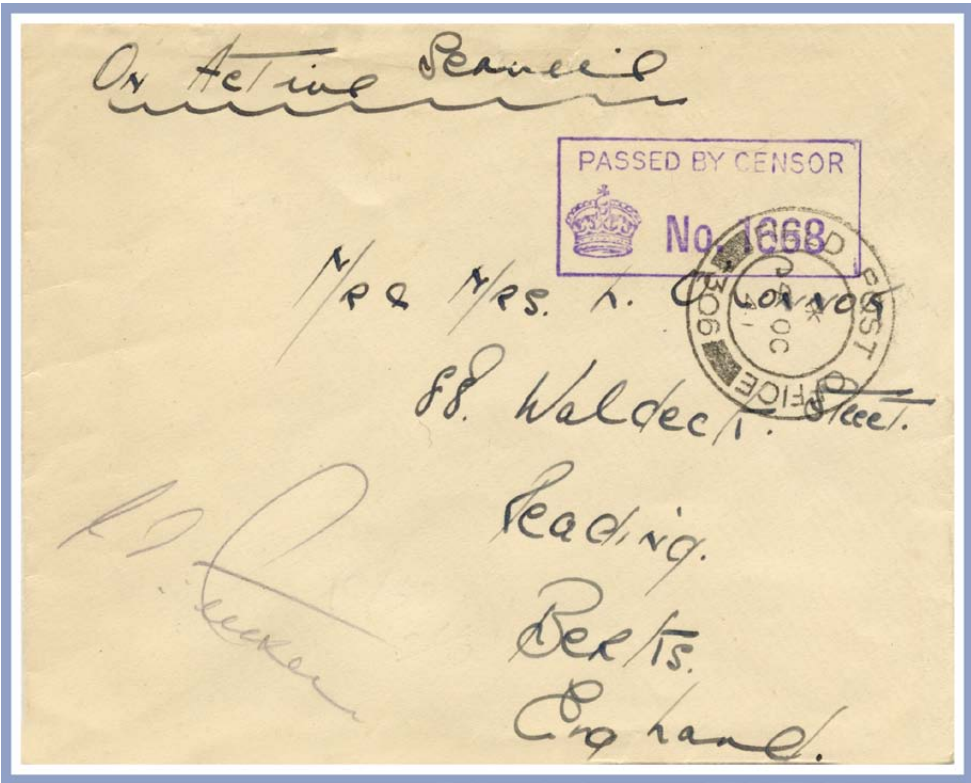 On Active Service
PASSED BY CENSOR
No. 1668
FIELD POST OFFICE
306
Mr & Mrs. L. O'Connor
88. Waldeck. Street.
Reading.
Berks.
England.